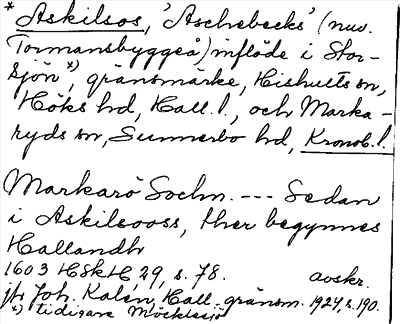 * Askilsos, 'Aschebecks' (nuv.
Tormansbyggeå) inflöde i Stor-
sjön *), gränsmärke, Hishults sn,
Höks hd, Hall. l., och Marka-
ryds sn, Sunnerbo hd, Kronob. l.
Markarö Sochn. --- Sedan
i Askilsooss, ther begynnes
Hallandh
1603 HSkH, 29, s. 78. avskr.
jfr Joh. Kalén, Hall. gränsm. 1924, s. 190.
*) tidigare Möcklasjö